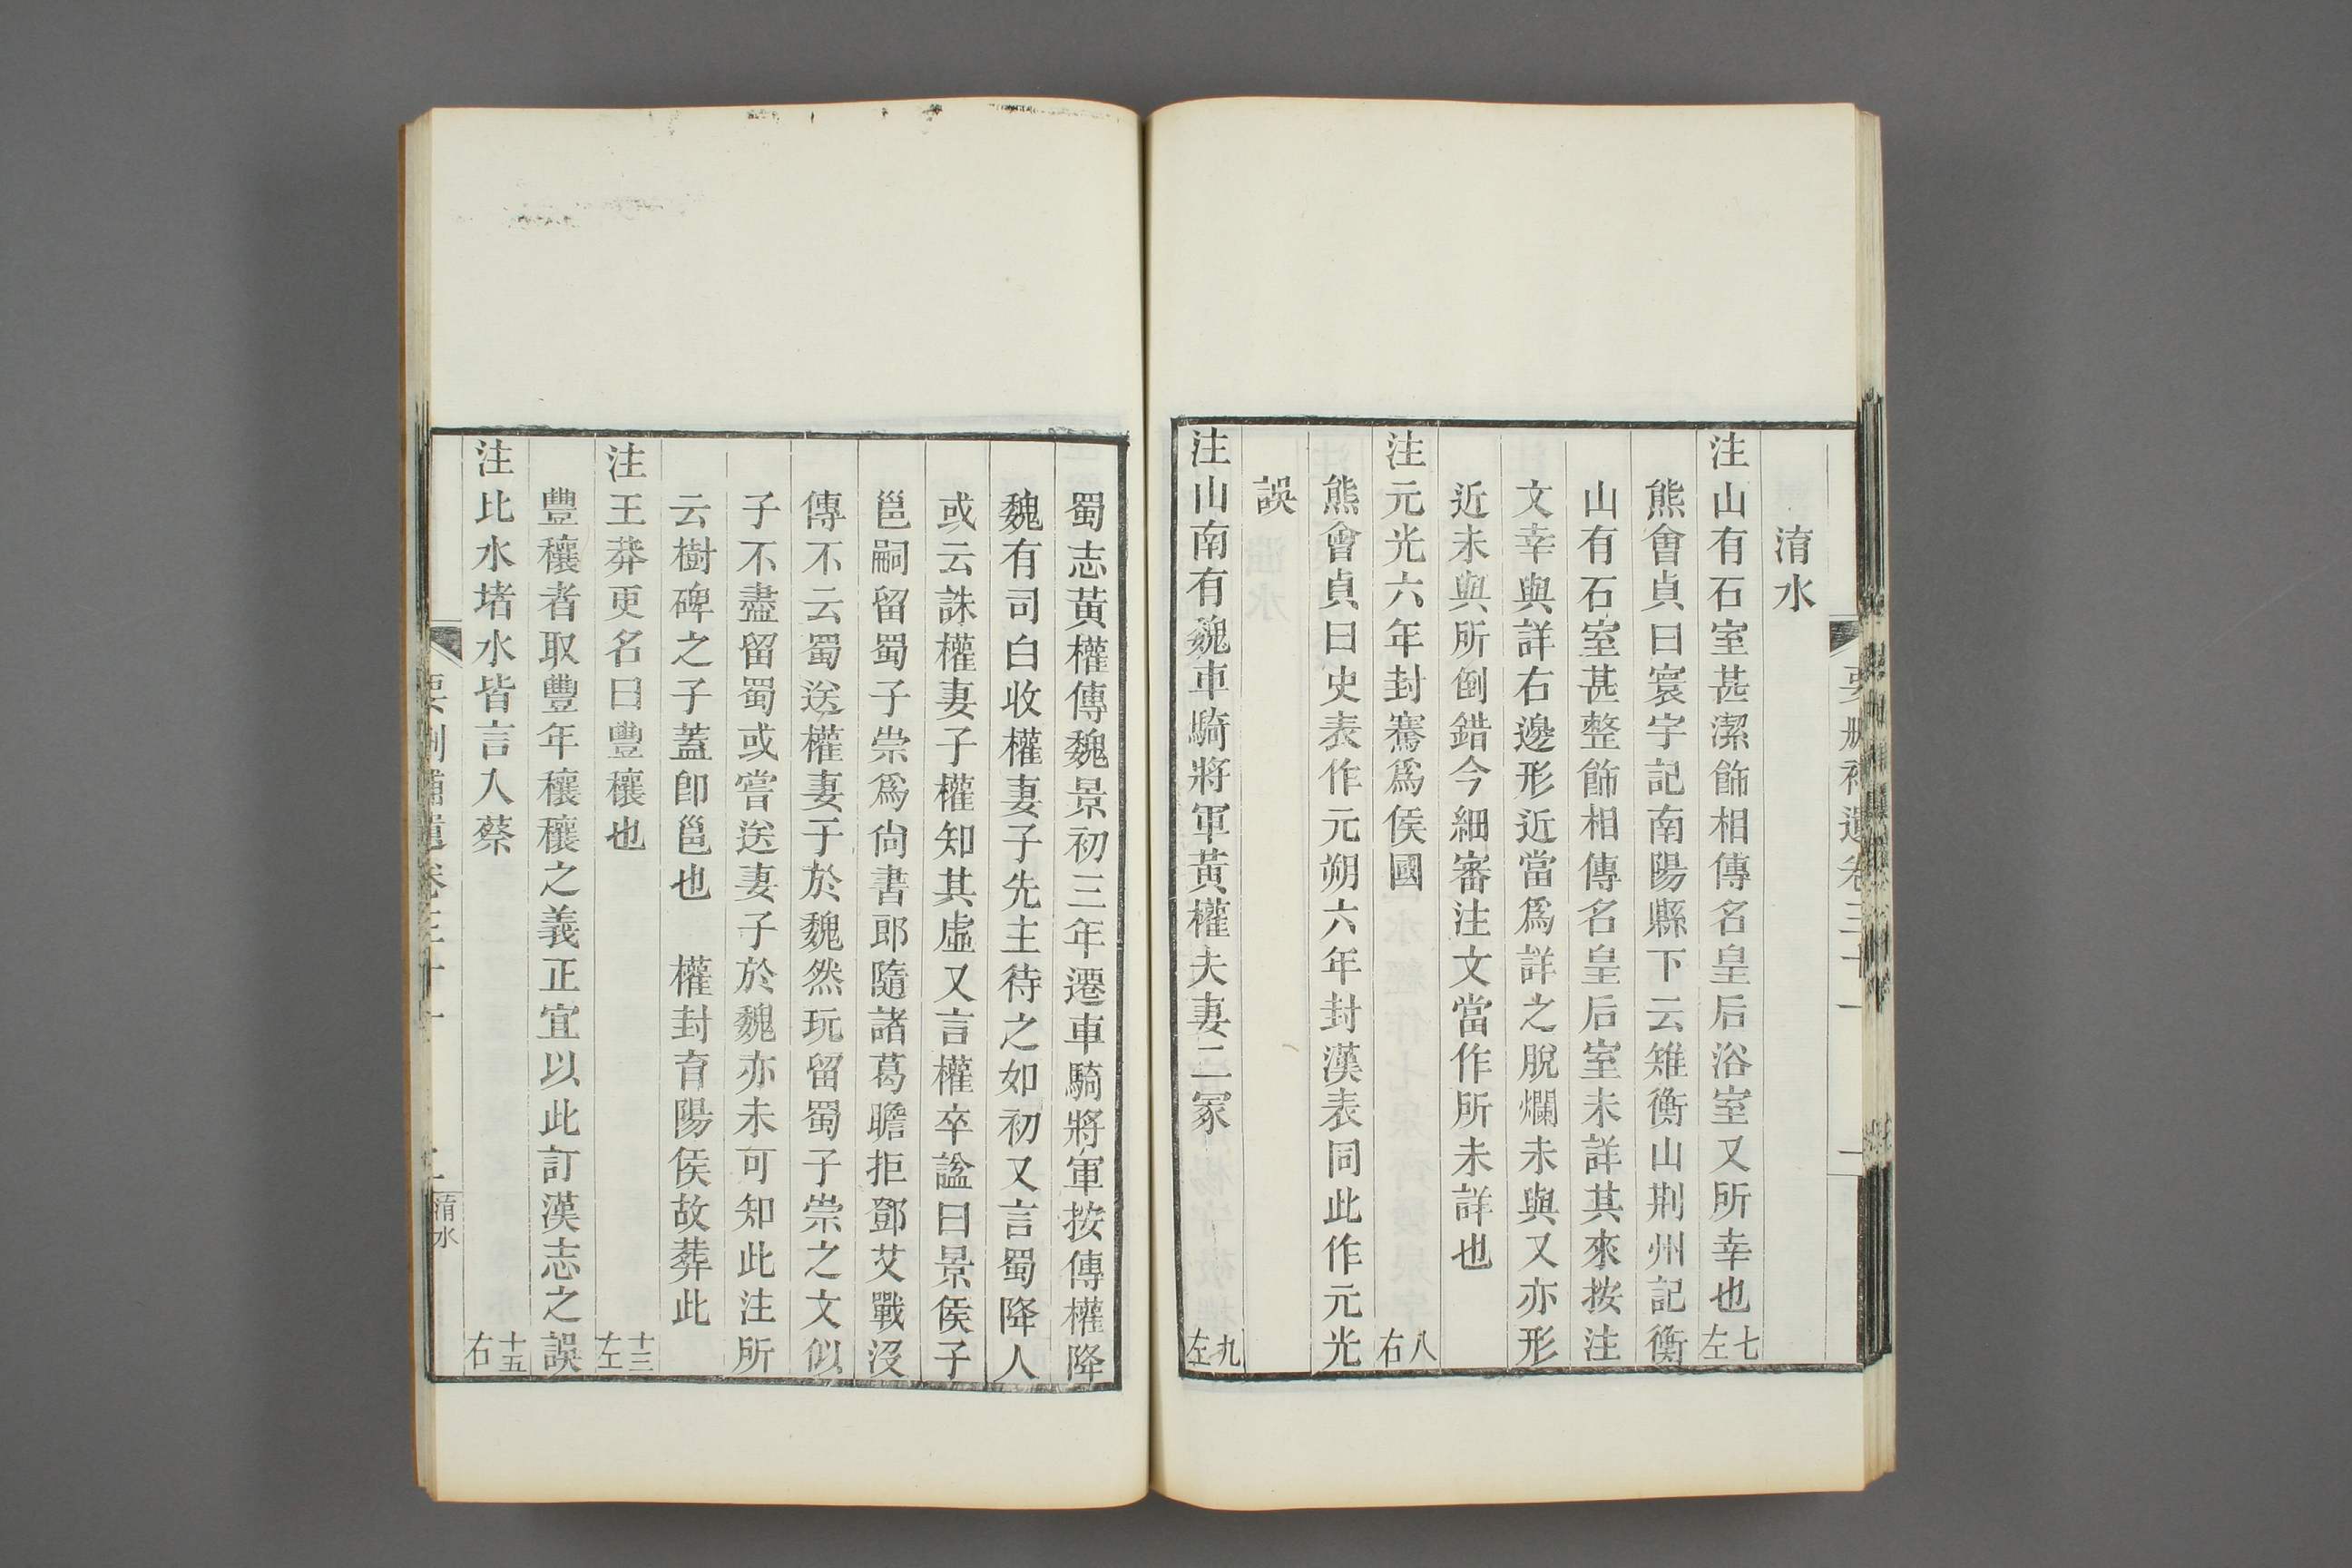 淯水
注山有石室甚潔飾相傳名皇后浴室又所幸也七左
熊會貞曰寰宇記南陽縣下云雉衡山荆州記衡
山有石室甚整飾相傳名皇后室未詳其來按注
文幸與詳右邊形近當爲詳之脫爛未與又亦形
近未與所倒錯今細審注文當作所未詳也
注元光六年封騫爲侯國八右
熊會貞曰史表作元朔六年封漢表同此作元光
誤
注山南有魏車騎將軍黃權夫妻二冢九左
蜀志黃權傳魏景初三年遷車騎將軍按傳權降
魏有司白收權妻子先主待之如初又言蜀降人
或云誅權妻子權知其虛又言權卒諡曰景侯子
邕嗣留蜀子崇爲尙書郎隨諸葛瞻拒鄧艾戰沒
傳不云蜀送權妻于於魏然玩留蜀子崇之文似
子不盡留蜀或嘗送妻子於魏亦未可知此注所
云樹碑之子蓋卽邕也　權封育陽侯故葬此
注王莽更名曰豐穰也十三左
豐穰者取豐年穰穰之義正宜以此訂漢志之誤
注比水堵水皆言入蔡十五右
要刪補遺卷三十一
二
淯水